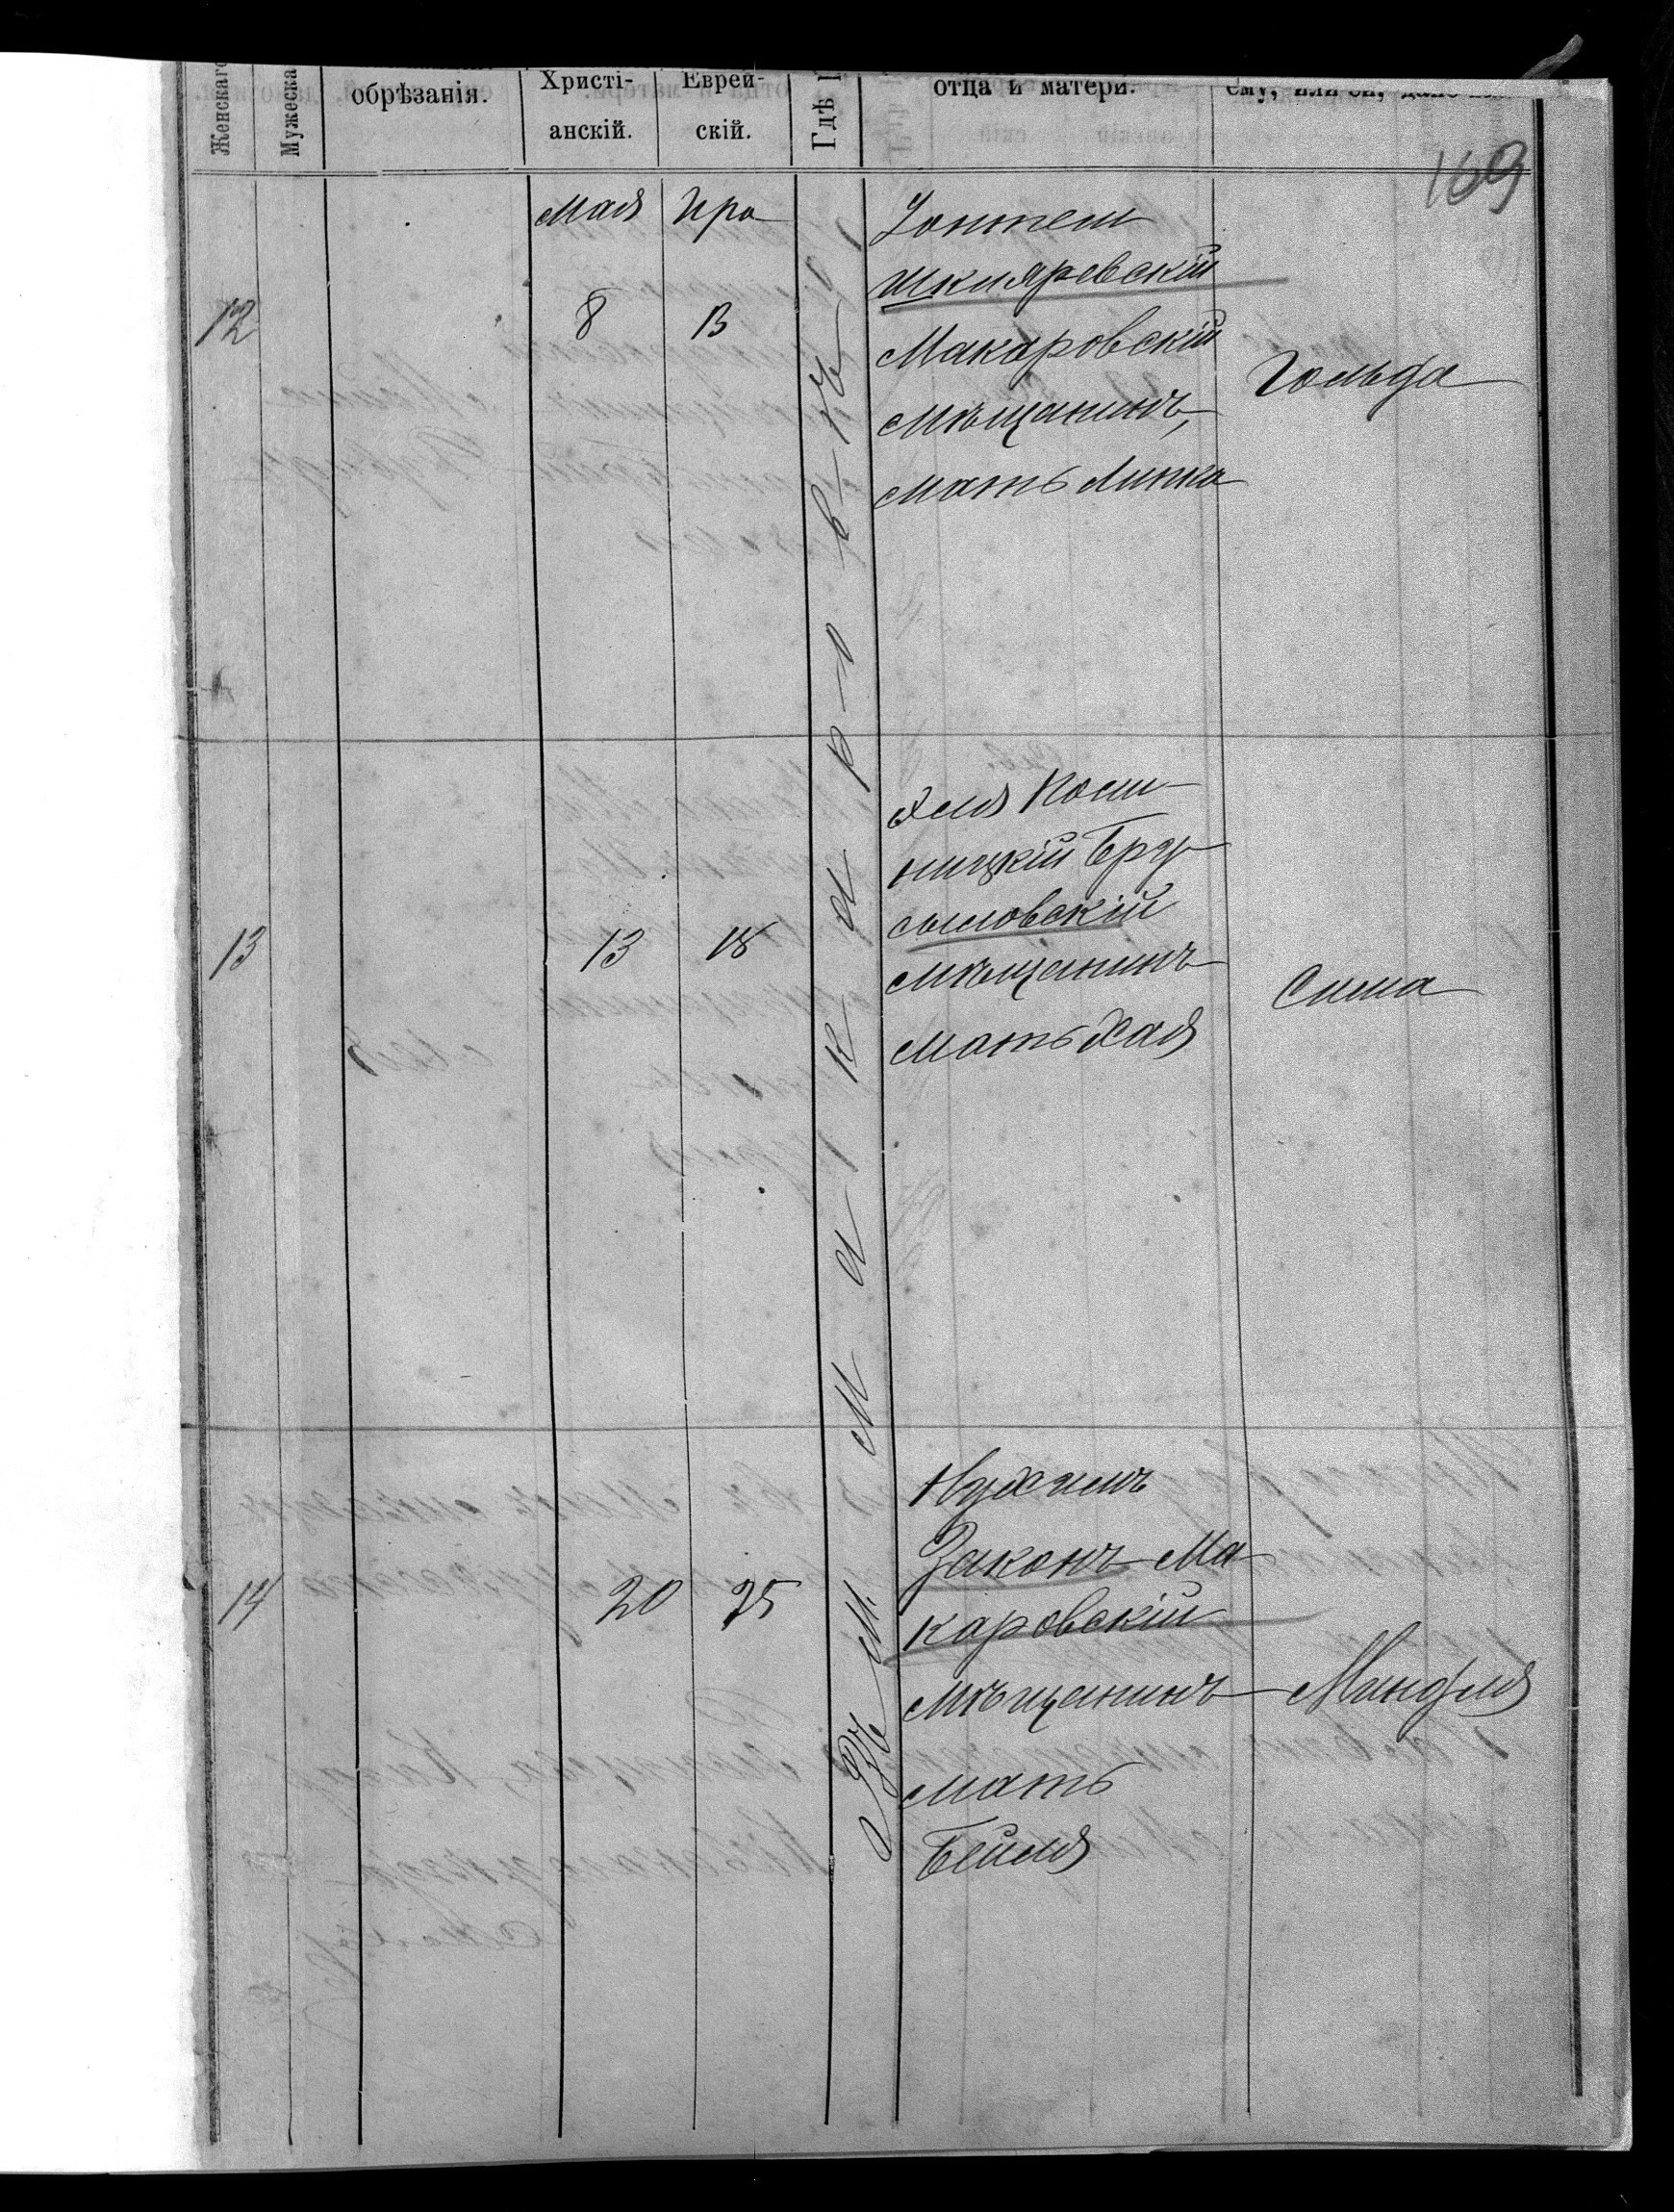 Женскаго
Мужеска
обрѣзанія.
Христі-
анскій.
Еврей-
скій.
Гдѣ
отца и матери.
ему, или ей, дано
169
Мая Ира
12
8 13
Зоптеш
Шкляревскій
Макаровскій
мѣщанинъ,
мать Липка
Гольда
Въ м. Макаровкѣ
13
13 18
Эля
ницкій Бру-
силовскій
мѣщанинъ
мать Хая
Сима
14
20 25
Нухимъ
Законъ Ма-
каровскій
мѣщанинъ
мать
Бейля
Миндля